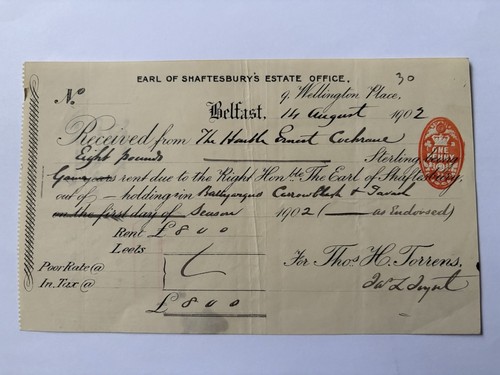 EARL OF SHAFTESBURY'S ESTATE OFFICE.
30
9, Wellington Place.
No
Belfast, 14 August 1902
Received from The Honble Ernest Cochrane
Eight pounds Sterling being
rent due to the Right Honble The Earl of Shaftesbury,
out of — holding in &
on the first day of Season 1902 (— as Endorsed)
ONE PENNY
Rent £8 " 0 " 0
Leets
Poor Rate @
In. Tax @
£8 " 0 " 0
For Thos. H. Torrens.